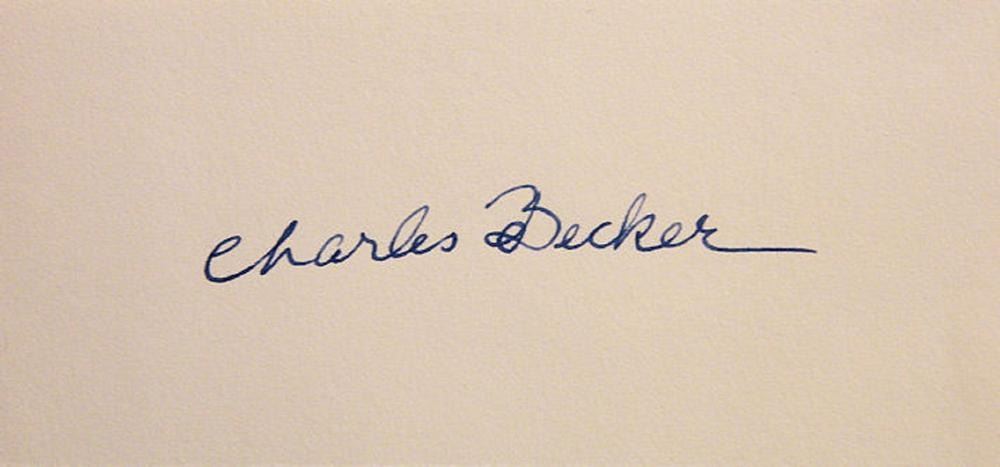 Charles Becker